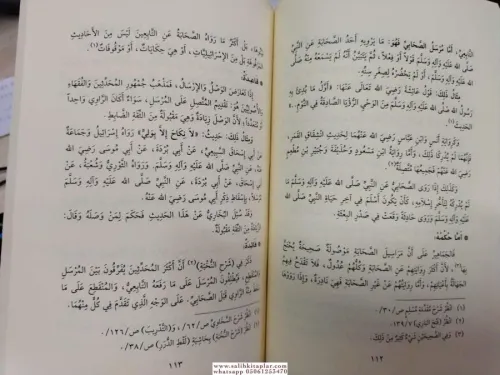 التَّابِعِيِّ، أَمَّا مُرْسَلُ الصَّحَابِيِّ فَهُوَ: مَا يَرْوِيهِ أَحَدُ الصَّحَابَةِ عَنِ النَّبِيِّ
صَلَّى اللهُ عَلَيْهِ وَسَلَّمَ قَوْلًا أَوْ فِعْلًا، ثُمَّ يَتَبَيَّنُ أَنَّهُ لَمْ يَسْمَعْهُ مِنْهُ صَلَّى
اللهُ عَلَيْهِ وَسَلَّمَ، أَوْ لَمْ يَحْضُرْهُ لِصِغَرِ سِنِّهِ
مِثَالُ ذَلِكَ: قَوْلُ عَائِشَةَ رَضِيَ اللهُ تَعَالَى عَنْهَا: «أَوَّلُ مَا بُدِئَ بِهِ
رَسُولُ اللهِ صَلَّى اللهُ عَلَيْهِ وَسَلَّمَ مِنَ الْوَحْيِ الرُّؤْيَا الصَّادِقَةُ فِي النَّوْمِ
الْحَدِيثَ
وَكَرِوَايَةِ أَنَسٍ وَابْنِ عَبَّاسٍ رَضِيَ اللهُ عَنْهُمَا لِحَدِيثِ انْشِقَاقِ الْقَمَرِ،
فَإِنَّهُمَا لَمْ يُدْرِكَا ذَلِكَ، أَمَّا رِوَايَةُ ابْنِ مَسْعُودٍ وَحُذَيْفَةَ وَجُبَيْرِ بْنِ مُطْعِمٍ
رَضِيَ اللهُ عَنْهُمْ فَجَمِيعُهَا مُتَّصِلَةٌ
وَكَذَلِكَ إِذَا رَوَى الصَّحَابِيُّ عَنِ النَّبِيِّ صَلَّى اللهُ عَلَيْهِ وَسَلَّمَ مَا
لَمْ يُدْرِكْهُ لِتَأَخُّرِ إِسْلَامِهِ، كَأَنْ يَكُونَ أَسْلَمَ فِي آخِرِ حَيَاةِ النَّبِيِّ صَلَّى
اللهُ عَلَيْهِ وَسَلَّمَ وَرَوَى حَادِثَةً وَقَعَتْ فِي صَدْرِ الْبِعْثَةِ.
* أَمَّا حُكْمُهُ:
فَالْجَمَاهِيرُ عَلَى أَنَّ مَرَاسِيلَ الصَّحَابَةِ مَوْصُولَةٌ صَحِيحَةٌ يُحْتَجُّ
بِهَا(٣)، لِأَنَّ أَكْثَرَ رِوَايَتِهِمْ عَنِ الصَّحَابَةِ وَكُلُّهُمْ عُدُولٌ، فَلَا تَقْدَحُ فِيهِمُ
الْجَهَالَةُ بِأَعْيَانِهِمْ، وَأَمَّا رِوَايَتُهُمْ عَنْ غَيْرِ الصَّحَابَةِ فَهِيَ نَادِرَةٌ، وَإِذَا رَوَوْهَا
(١) انْظُرْ شَرْحَ مُقَدِّمَةِ مُسْلِمٍ ص/٣٠/.
(٢) انْظُرْ (فَتْحَ الْبَارِي) ١٣٩/٧.
(٣) وَفِي الصَّحِيحَيْنِ شَيْءٌ كَثِيرٌ مِنْ ذَلِكَ.
١١٢
بَيَّنُوهَا، بَلْ أَكْثَرُ مَا رَوَاهُ الصَّحَابَةُ عَنِ التَّابِعِينَ لَيْسَ مِنَ الْأَحَادِيثِ
الْمَرْفُوعَةِ بَلْ مِنَ الْإِسْرَائِيلِيَّاتِ، أَوْ هِيَ حِكَايَاتٌ، أَوْ مَوْقُوفَاتٌ(١).
* فَائِدَةٌ:
إِذَا تَعَارَضَ الْوَصْلُ وَالْإِرْسَالُ، فَمَذْهَبُ جُمْهُورِ الْمُحَدِّثِينَ وَالْفُقَهَاءِ
وَالْأُصُولِيِّينَ هُوَ: تَقْدِيمُ الْمُتَّصِلِ عَلَى الْمُرْسَلِ، سَوَاءٌ أَكَانَ الرَّاوِي وَاحِدًا
أَوْ مُتَعَدِّدًا؛ لِأَنَّ الْوَصْلَ زِيَادَةٌ وَهِيَ مَقْبُولَةٌ مِنَ الثِّقَةِ الضَّابِطِ.
وَمِثَالُ ذَلِكَ: حَدِيثُ: «لَا نِكَاحَ إِلَّا بِوَلِيٍّ» رَوَاهُ إِسْرَائِيلُ وَجَمَاعَةٌ
عَنْ أَبِي إِسْحَاقَ السَّبِيعِيِّ، عَنْ أَبِي بُرْدَةَ، عَنْ أَبِي مُوسَى رَضِيَ اللهُ
عَنْهُ، عَنِ النَّبِيِّ صَلَّى اللهُ عَلَيْهِ وَسَلَّمَ. وَرَوَاهُ الثَّوْرِيُّ وَشُعْبَةُ، عَنْ
أَبِي إِسْحَاقَ، عَنْ أَبِي بُرْدَةَ، عَنِ النَّبِيِّ صَلَّى اللهُ عَلَيْهِ وَسَلَّمَ
مُرْسَلًا، بِإِسْقَاطِ ذِكْرِ أَبِي مُوسَى رَضِيَ اللهُ عَنْهُ.
وَقَدْ سُئِلَ الْبُخَارِيُّ عَنْ هَذَا الْحَدِيثِ فَحَكَمَ لِمَنْ وَصَلَهُ وَقَالَ:
الزِّيَادَةُ مِنَ الثِّقَةِ مَقْبُولَةٌ.
* فَائِدَةٌ:
ذَكَرَ فِي (شَرْحِ النُّخْبَةِ)(٢) أَنَّ أَكْثَرَ الْمُحَدِّثِينَ يُفَرِّقُونَ بَيْنَ الْمُرْسَلِ
وَالْمُنْقَطِعِ، فَيُطْلِقُونَ الْمُرْسَلَ عَلَى مَا رَفَعَهُ التَّابِعِيُّ، وَالْمُنْقَطِعَ عَلَى مَا
سَقَطَ مِنْهُ الرَّاوِي قَبْلَ الصَّحَابِيِّ، عَلَى الْوَجْهِ الَّذِي تَقَدَّمَ فِي كُلٍّ مِنْهُمَا.
(١) انْظُرْ شَرْحَ السَّخَاوِيِّ ص/٦٢/، وَ(التَّدْرِيبَ) ص/١٢٦/.
(٢) انْظُرْ (شَرْحَ النُّخْبَةِ) بِحَاشِيَةِ (لَقْطِ الدُّرَرِ) ص/٣٨/.
١١٣
www.salihkitaplar.com
whatsapp 05061253470